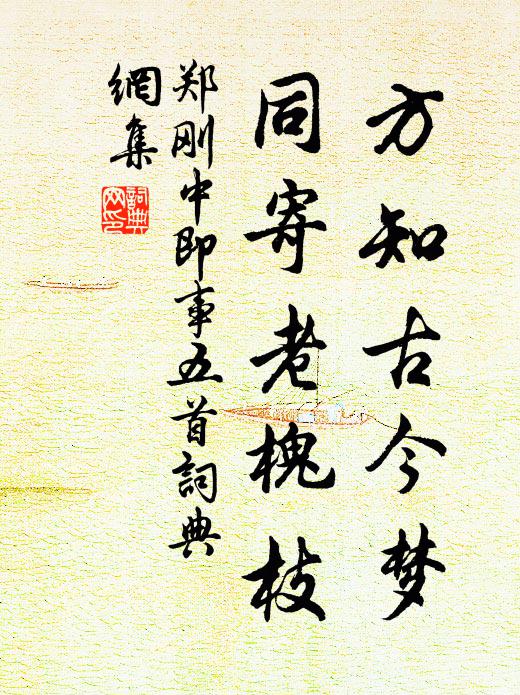 方知古今梦
同寄老槐枝
郑刚中即事五首詞典
網集
詞典网印